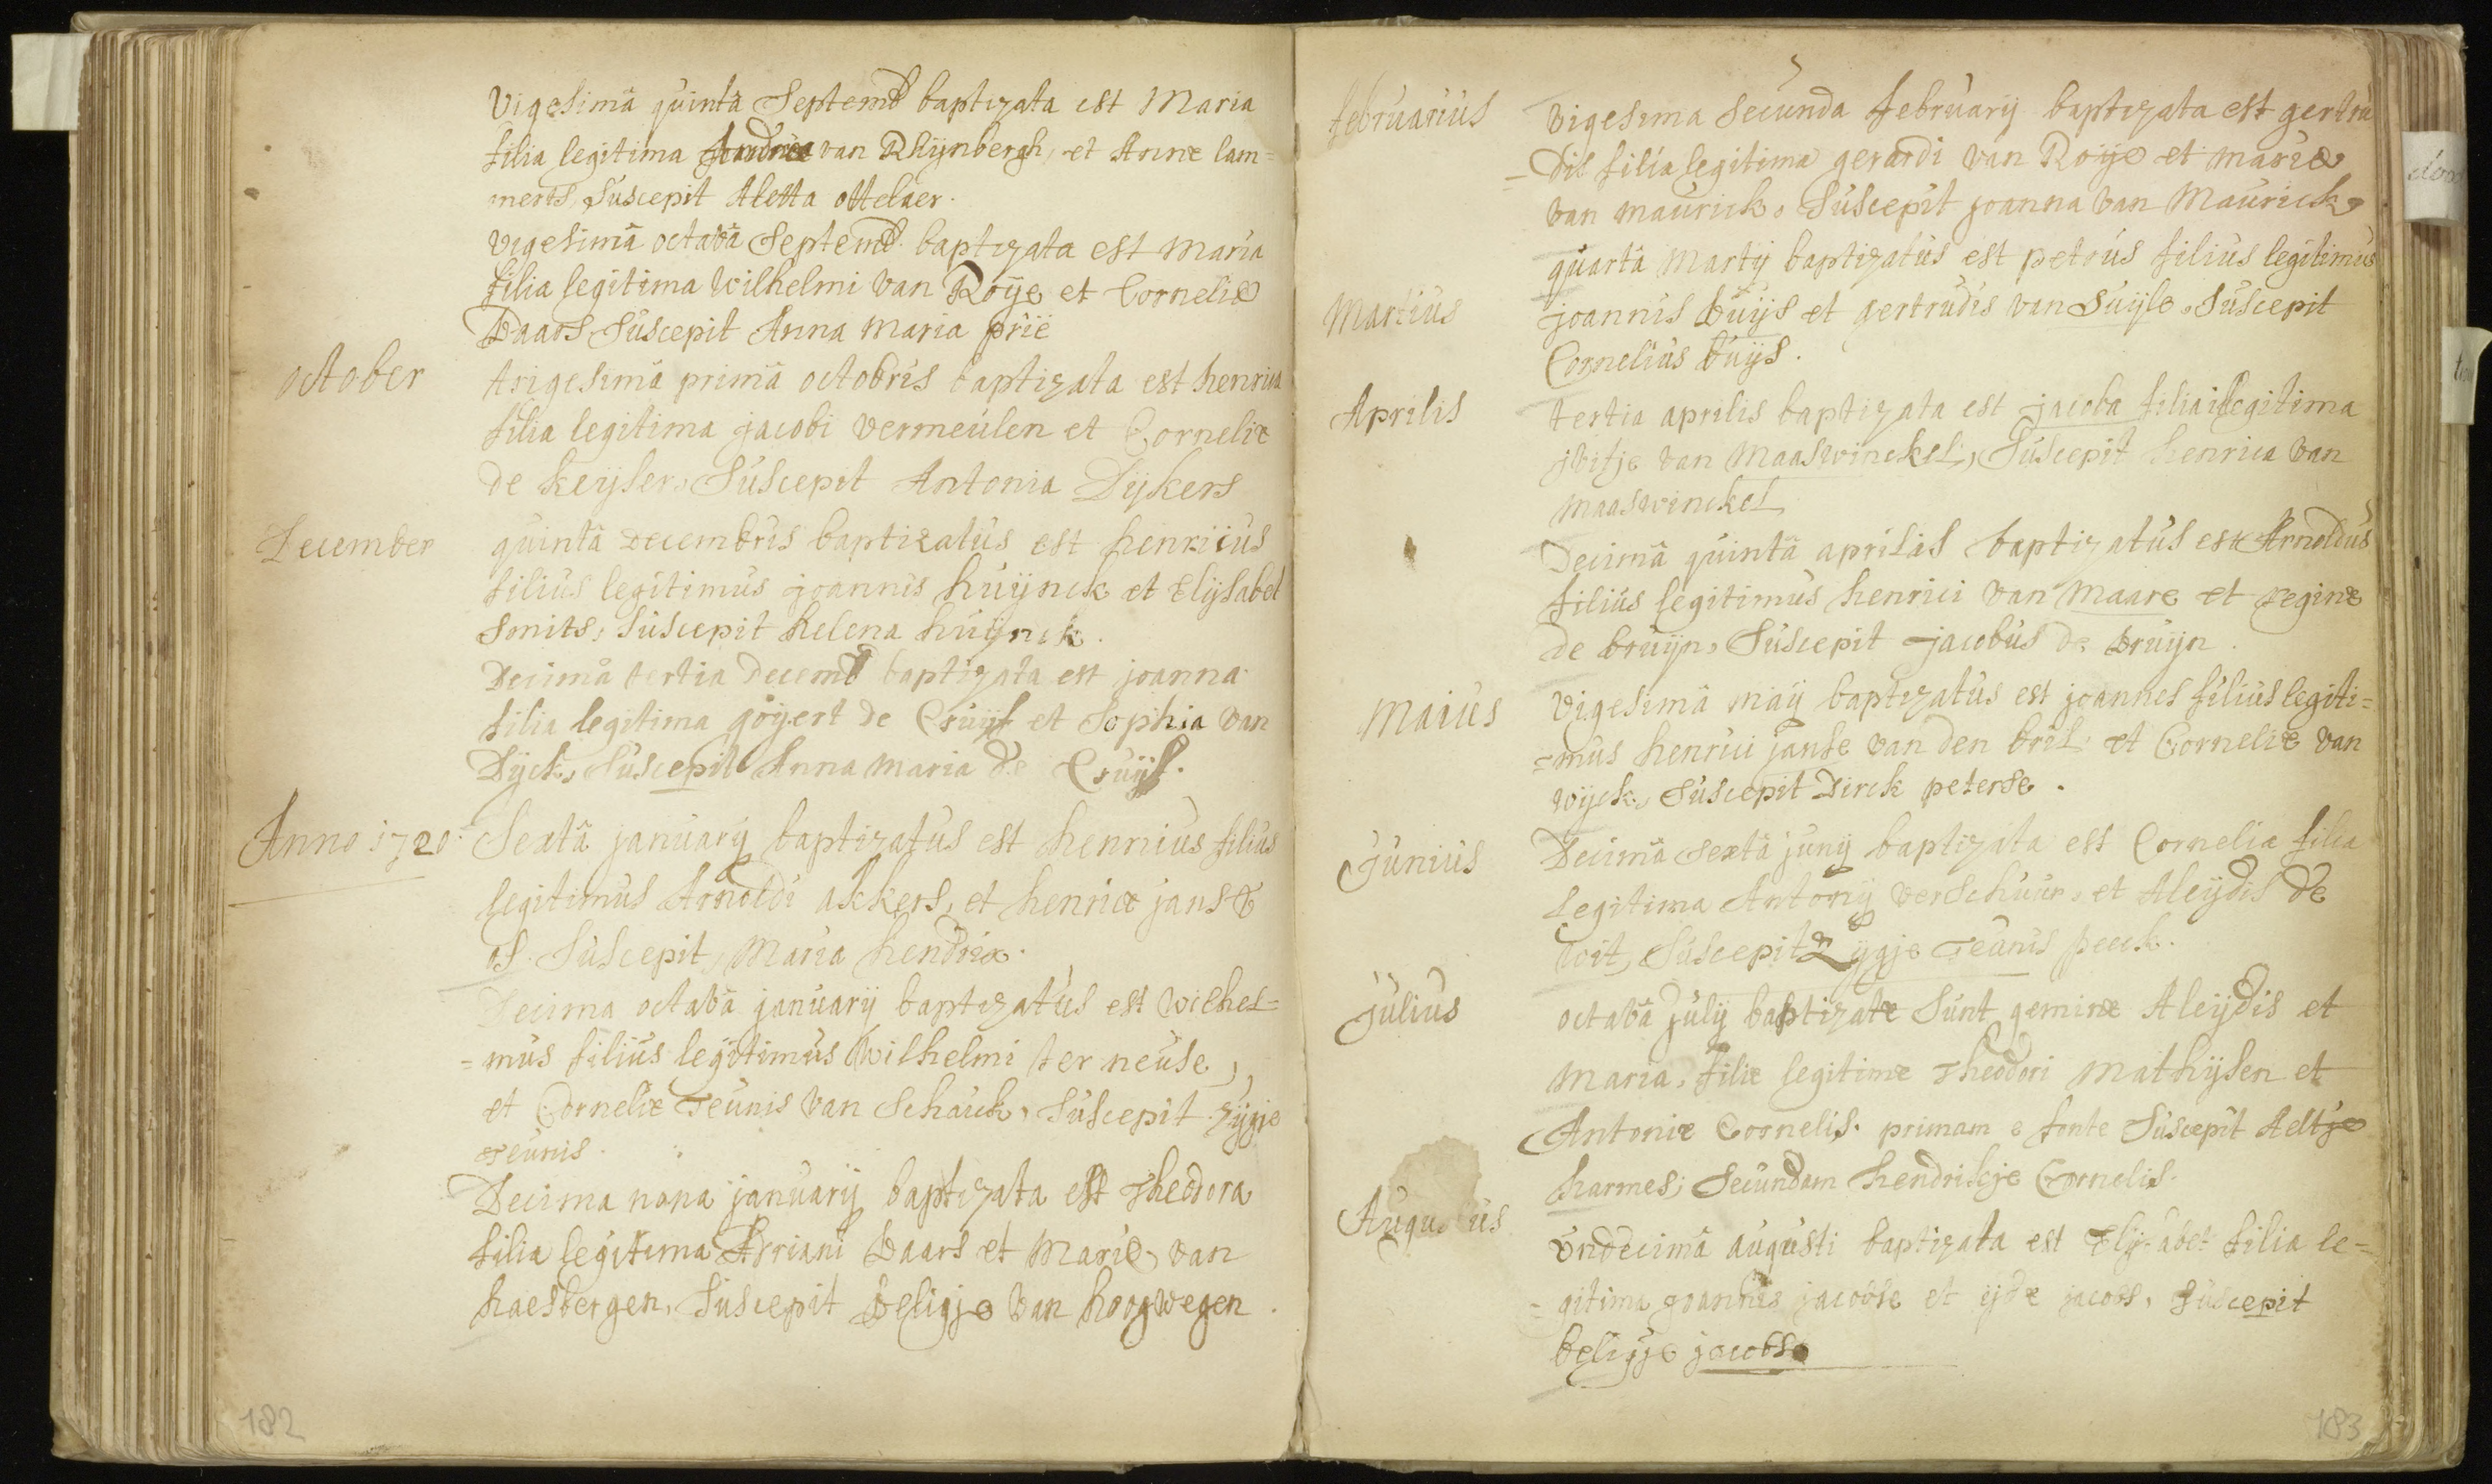 Vigesimâ quintâ Septemb baptizata est Maria
filia legitima van Rhijnbergh, et Anne lam=
merts, Suscepit Aletta ottelaer.
Vigesimâ octavâ Septemb. baptizata est Maria
filia legitima Wilhelmi van Röije et Corneliæ
Baars Suscepit Anna Maria prië
october
trigesimâ primâ octobris baptizata est henrica
filia legitima jacobi vermeulen et Corneliæ
de keijser, Suscepit Antonia Dijkers
December
quintâ Decembris baptizatus est henricus
filius legitimus joannis huijnck et Elijsabet
Smits, Suscepit helena huijnck.
Decimâ tertia Decemb baptizata est joanna
filia legitima goijert de Cruijf et Sophia van
Dijck, Suscepit Anna maria de Cruijf.
Anno 1720.
Sextâ januarij baptizatus est henricus filius
legitimus Arnoldi akkers, et henricæ jans
os. Suscepit, Maria hendrix.
Decima octavâ januarij baptizatus est wilhel=
=mus filius legitimus wilhelmi ter neuse,
et Corneliæ Teunis van Schaick, Suscepit Zijgje
Teunis.
Decima nona januarij baptizata est Theodora
filia legitima Adriani Baars et Mariæ van
haesbergen, Suscepit Beligje van hoogwegen.
182
februarius
Vigesima Secunda februarij baptizata est gertru
=dis filia legitima gerardi van Roije et mariæ
van maurick, Suscepit joanna van Maurick,
Martius
quartâ Martij baptizatus est petrus filius legitimus
joannis buijs et gertrudis van Suijle, Suscepit
Cornelius buijs.
Aprilis
tertia aprilis baptizata est jacoba filia illegitima
jvitje van Maaswinckel, Suscepit henrica van
maaswinckel
Decimâ quintâ aprilis baptizatus est Arnoldus
filius legitimus henrici van Maare et reginæ
de bruijn, Suscepit jacobus de bruijn.
Maius
Vigesimâ maij baptizatus est joannes filius legiti=
=mus henrici janse van den bril et Corneliæ van
wijck, Suscepit Dirck peterse.
Junius
Decimâ Sextâ junij baptizata est Cornelia filia
legitima Antonij verschuur, et Aleijdis de
wit, Suscepit Zijgje Teunis peeck.
Julius
octavâ julij baptizatæ Sunt geminæ Aleijdis et
Maria, filiæ legitimæ Theodori Mathijsen et
Antoniæ Cornelis. primam e fonte Suscepit Aeltje
harmes; Secundam hendrikje Cornelis.
Augustus
Undecimâ augusti baptizata est Elijsabet filia le=
=gitima joannis jacobse et ijdæ jacobs, Suscepit
beligje jacobse
183